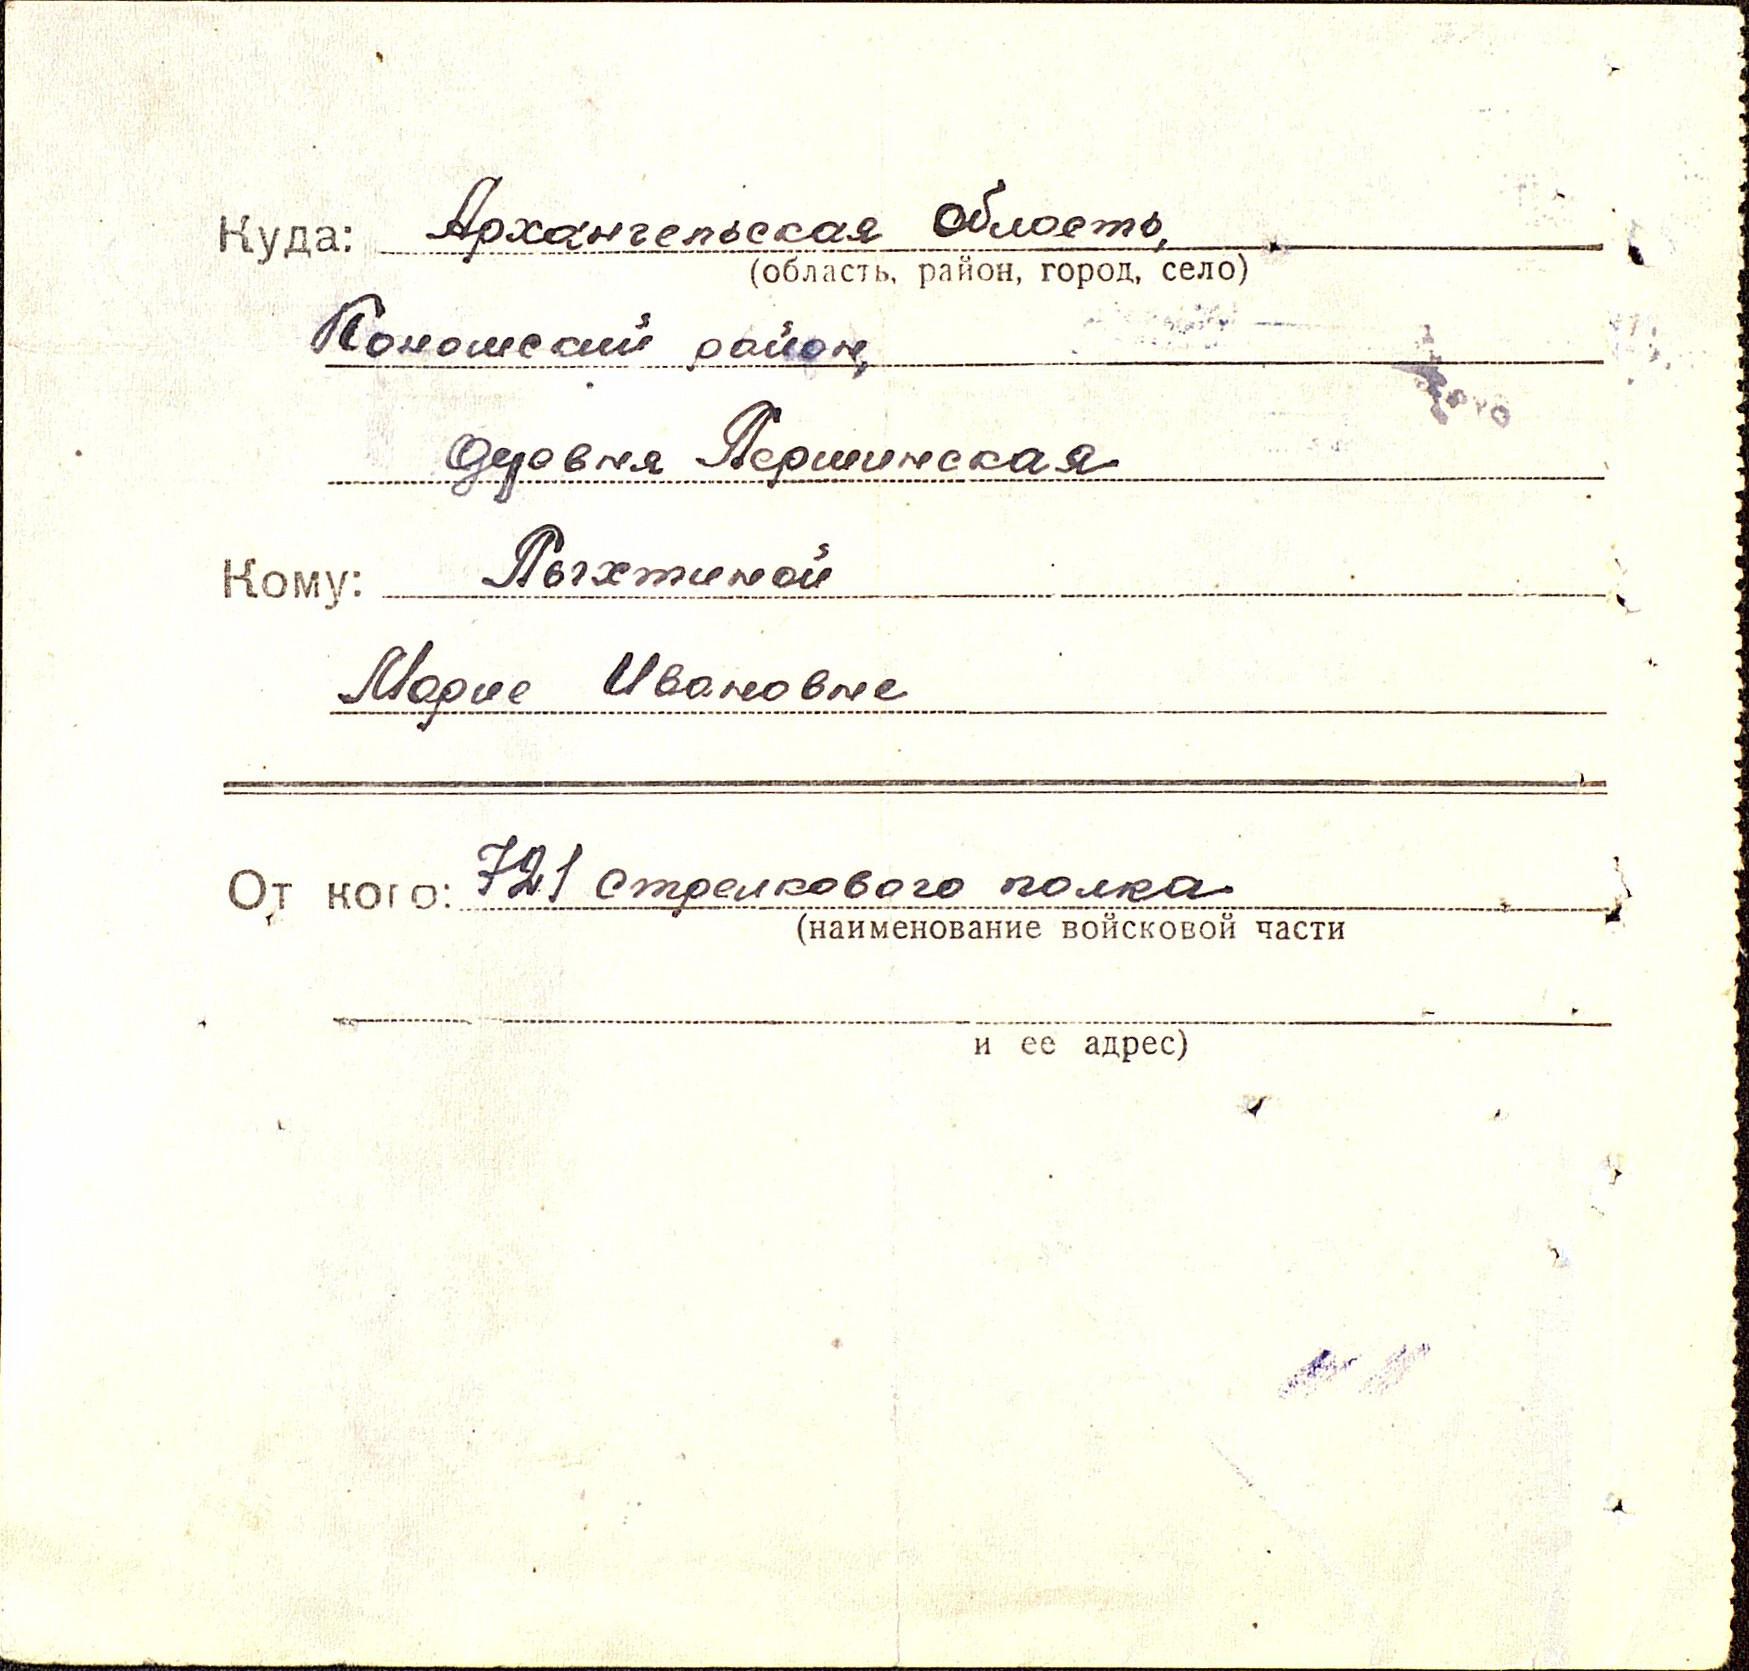 Куда: Архангельская область,
(область, район, город, село)
Коношский район,
деревня Першинская
Кому: Пыхтиной
Марие Ивановне
От кого: 721 стрелкового полка
(наименование войсковой части
и ее адрес)